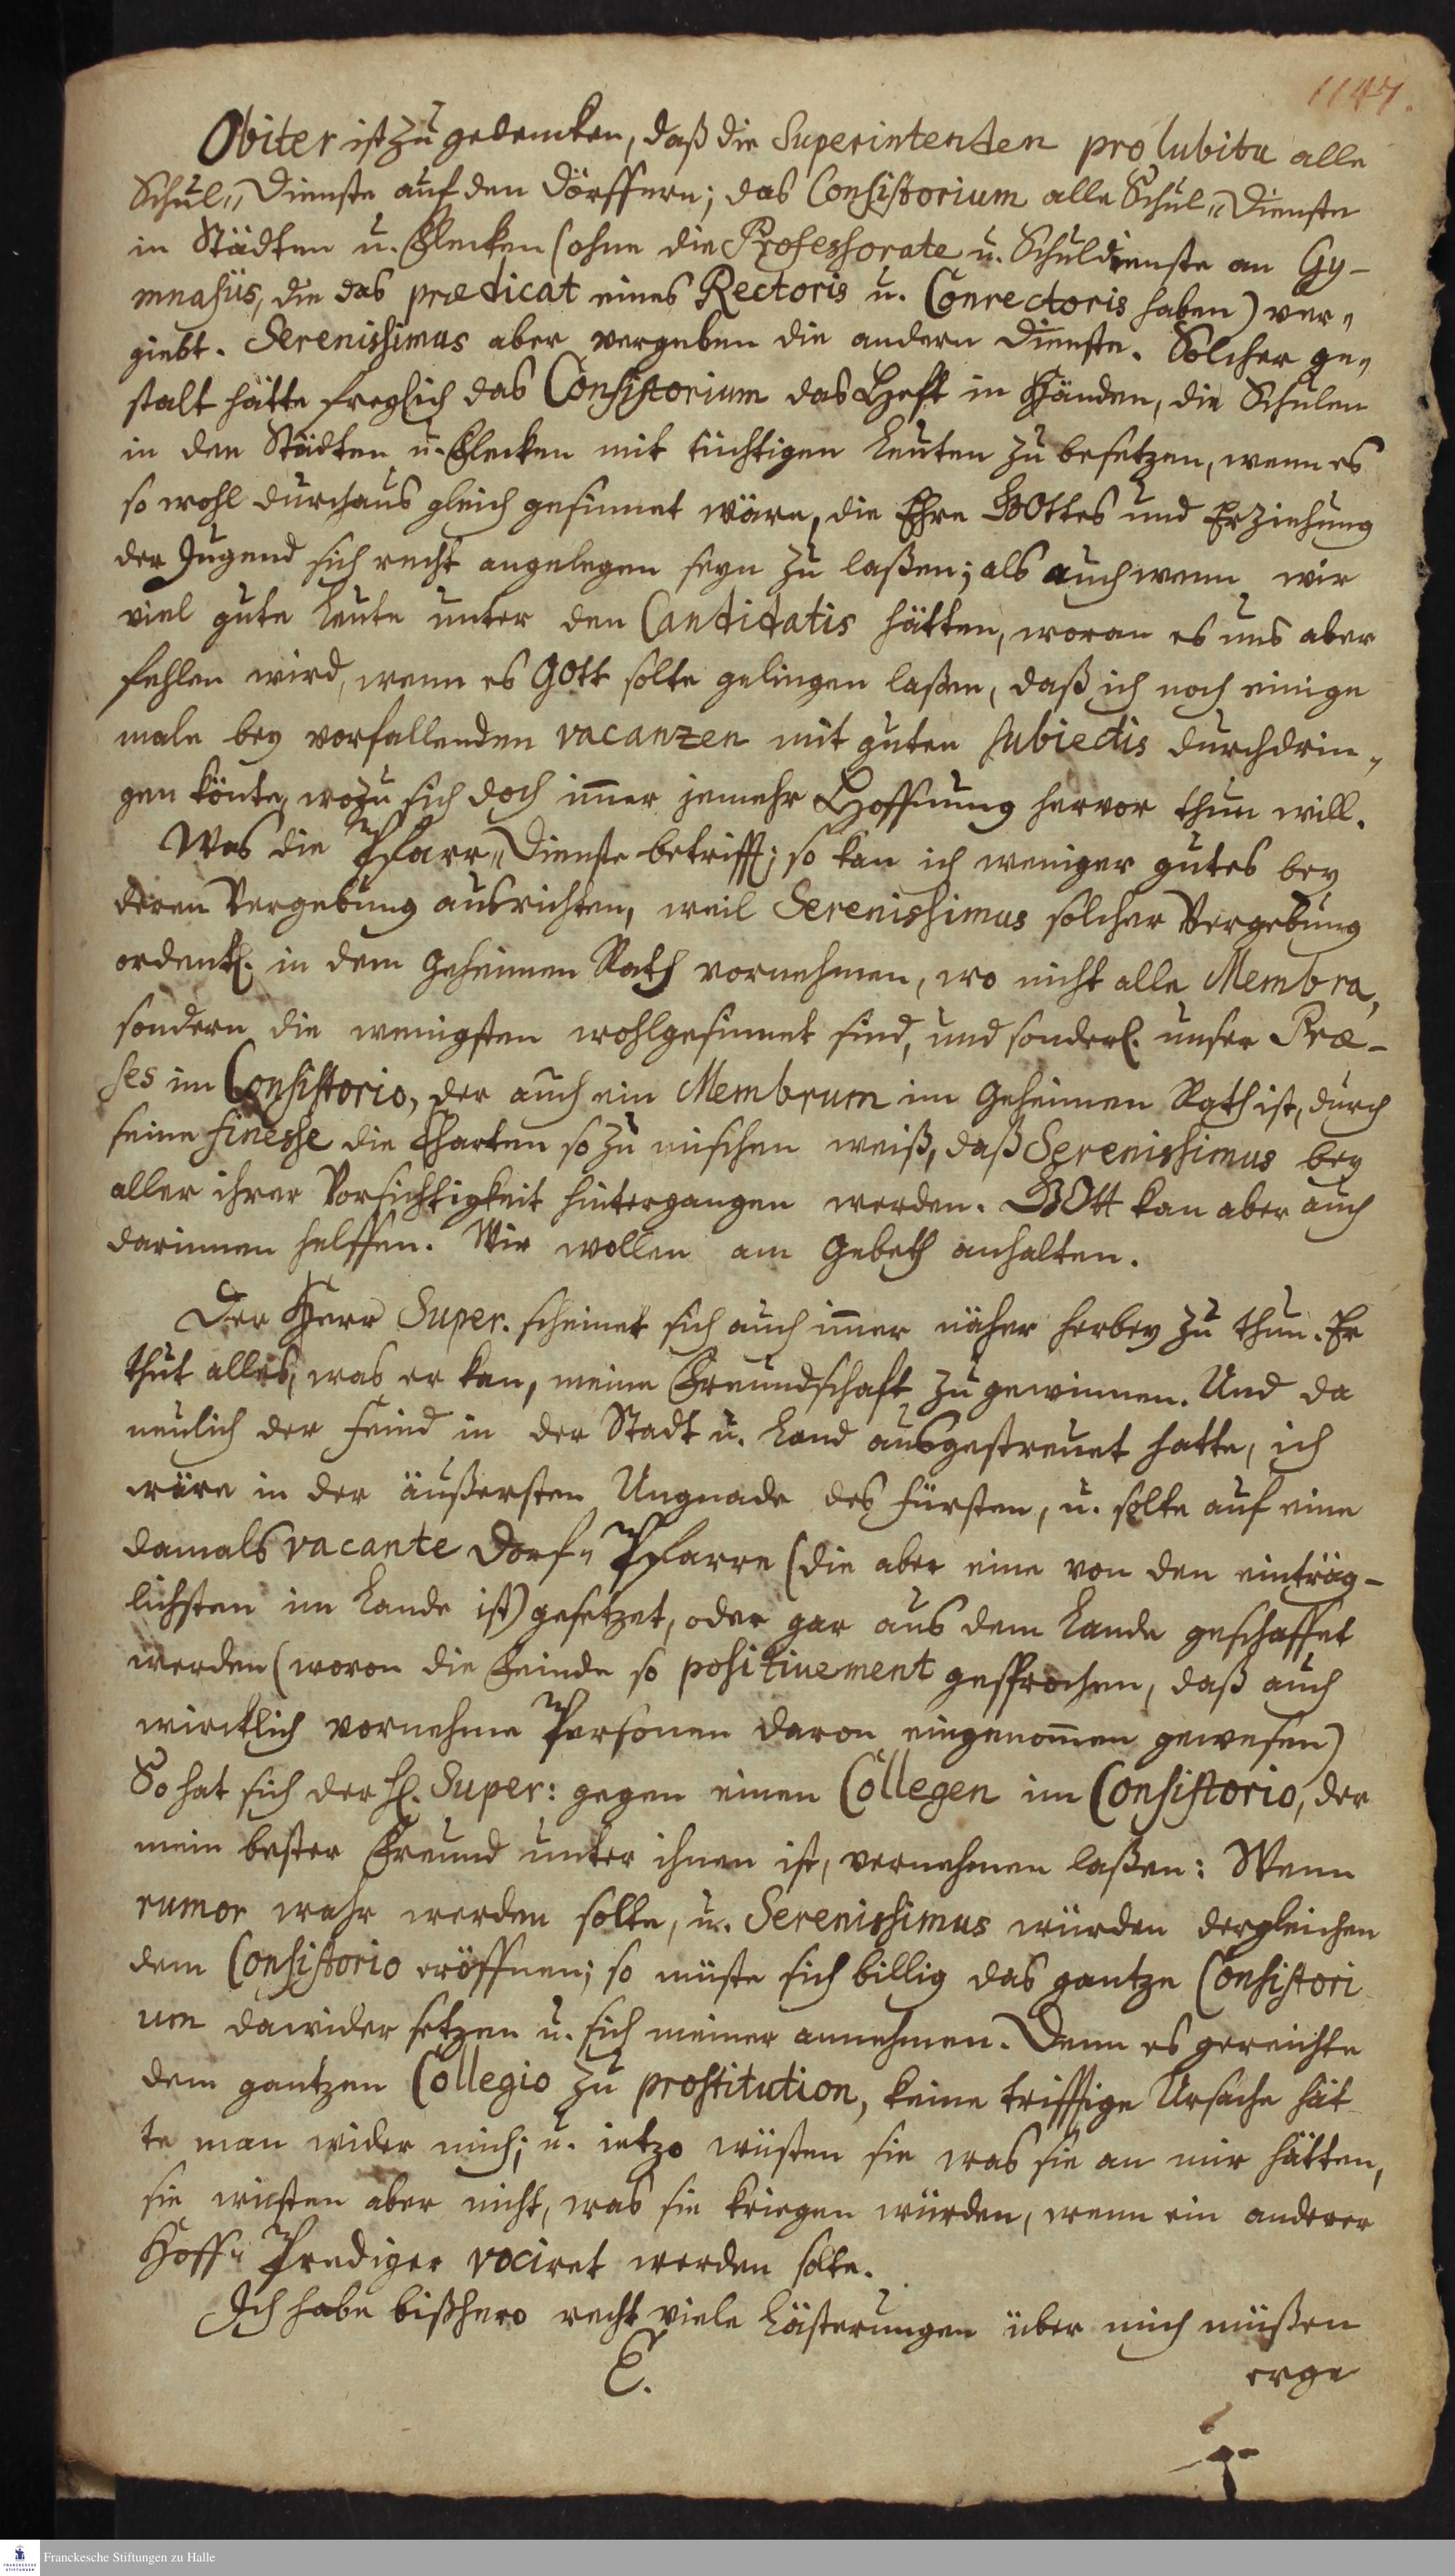 1147.
Obiter ist zu gedencken, daß die Superintenden pro lubitu alle
Schul-Dienste auf den Dörffern; das Consistorium alle Schul-Dienste
in Städten u. Flecken (ohne die Professorate u. Schuldienste an Gy-
mnasiis, die das prædicat eines Rectoris u. Conrectoris haben) ver-
giebt. Serenissimus aber vergeben die andern Dienste. Solcher ge-
stalt hätte freylich das Consistorium das Heft in Händen, die Schulen
in den Städten u. Flecken mit tüchtigen Leuten zu besetzen, wenn es
so wohl durchaus gleich gesinnet wäre, die Ehre GOttes und Erziehung
der Jugend sich recht angelegen seyn zu laßen; als auch wenn wir
viel gute Leute unter den Candidatis hätten, woran es uns aber
fehlen wird, wenn es Gott solte gelingen laßen, daß ich noch einige
male bey vorfallenden vacanzen mit guten subiectis durchdrin-
gen könte, wozu sich doch im̅er jemehr Hoffnung hervor thun will.
Was die Pfarr-Dienste betrifft; so kan ich weniger gutes bey
deren Vergebung ausrichten, weil Serenissimus solcher Vergebung
ordentl. in dem Geheimen Rath vornehmen, wo nicht alle Membra,
sondern die wenigsten wohlgesinnet sind, und sonderl. unser Præ-
ses im Consistorio, der auch ein Membrum im Geheimen Rath ist, durch
seine finesse die Charten so zu mischen weiß, daß Serenissimus bey
aller ihrer Vorsichtigkeit hintergangen werden. GOtt kan aber auch
darinnen helffen. Wir wollen am Gebeth anhalten.
Der Herr Super. scheinet sich auch im̅er näher herbey zu thun. Er
thut alles, was er kan, meine Freundschaft zu gewinnen. Und da
neulich der Feind in der Stadt u. Land ausgestreuet hatte, ich
wäre in der äußersten Ungnade des Fürsten, u. solte auf eine
damals vacante Dorf-Pfarre (die aber eine von den einträg-
lichsten im Lande ist) gesetzet, oder gar aus dem Lande geschaffet
werden (wovon die Feinde so positivement gesprochen, daß auch
wircklich vornehme Personen davon eingenom̅en gewesen)
So hat sich der H. Super: gegen einen Collegen im Consistorio, der
mein bester Freund unter ihnen ist, vernehmen laßen: Wenn
rumor wahr werden solte, u. Serenissimus würden dergleichen
dem Consistorio eröffnen; so müste sich billig das gantze Consistori
um dawider setzen u. sich meiner annehmen. Denn es gereichte
dem gantzen Collegio zu prostitution, keine trifftige Ursache hät-
te man wider mich; u. ietzo wüsten sie was sie an mir hätten,
sie wüsten aber nicht, was sie kriegen würden, wenn ein anderer
Hoff-Prediger vociret werden solte.
Ich habe bißhero recht viele Lästerungen über mich müßen
E.
erge
Franckesche Stiftungen zu Halle